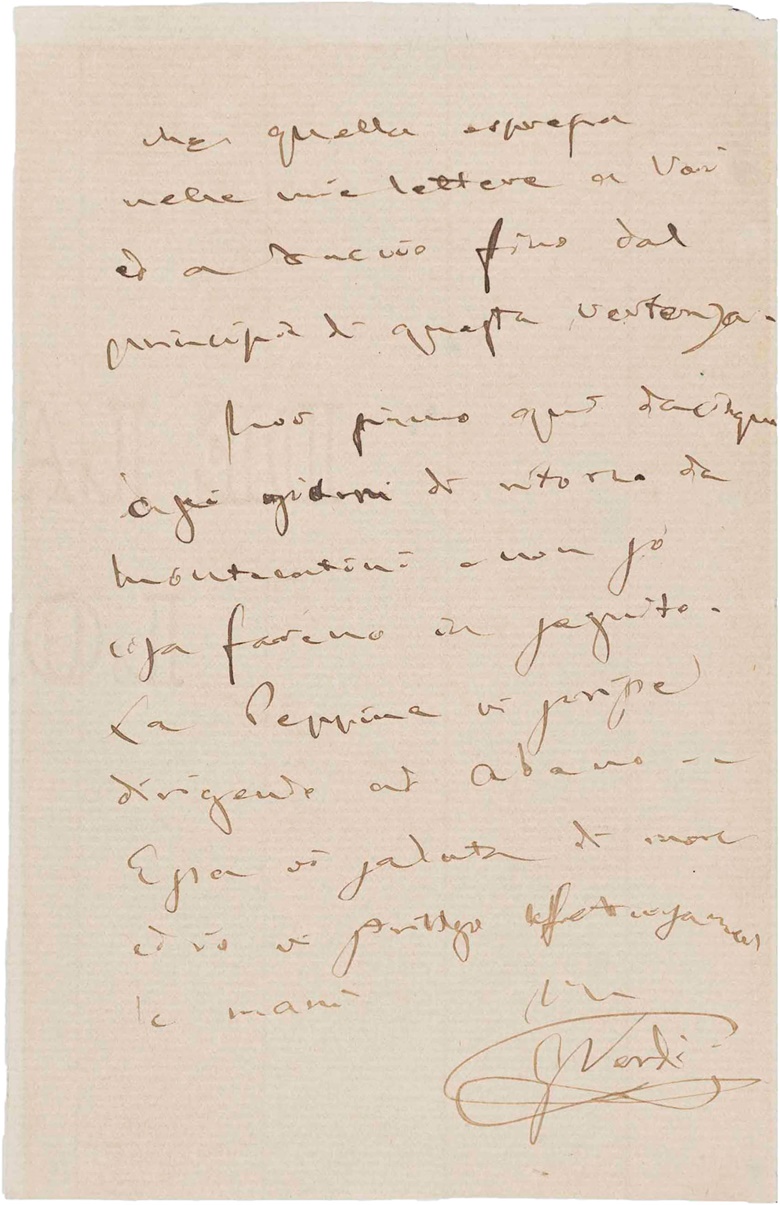 che quella espressa
nelle mie lettere a Voi
ed a fino dal
principio di questa vertenza.
Noi siamo qui da cinque
o sei giorni di ritorno da
Montecatini e non so
cosa faremo in seguito.
La Peppina vi scrisse
dirigendo ad Abano --
Essa vi saluta di cuore
ed io vi stringo affettuosamente
le mani
G Verdi